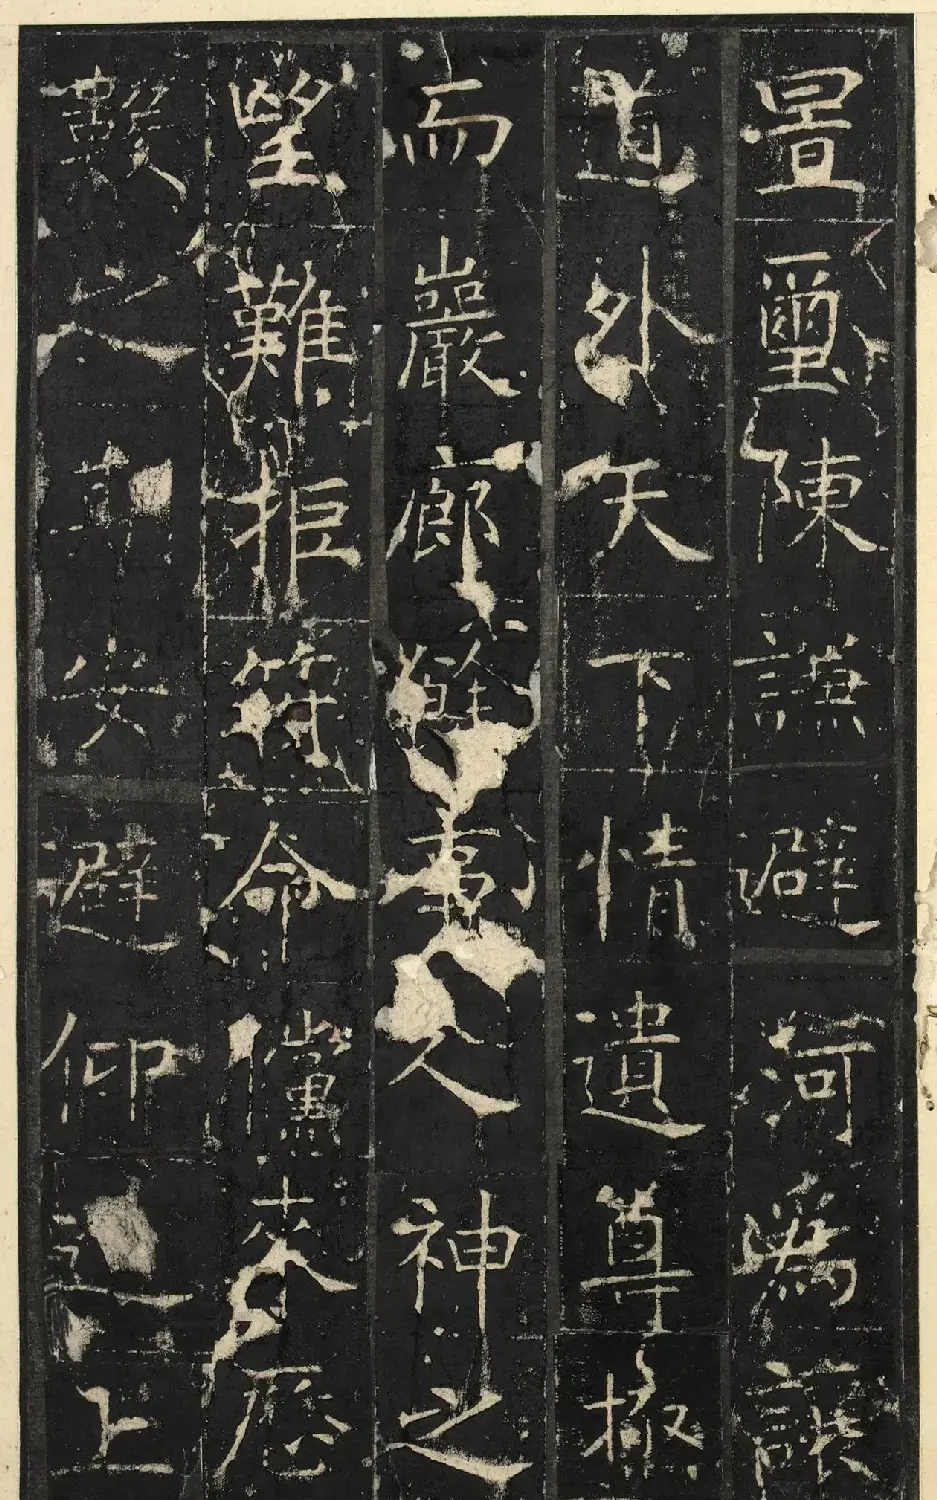 置璽陳謙避河爲讓
道外天下情遺尊極
而巖廊餘事人神之
望難拒符命儻來歷
數之安避仰上